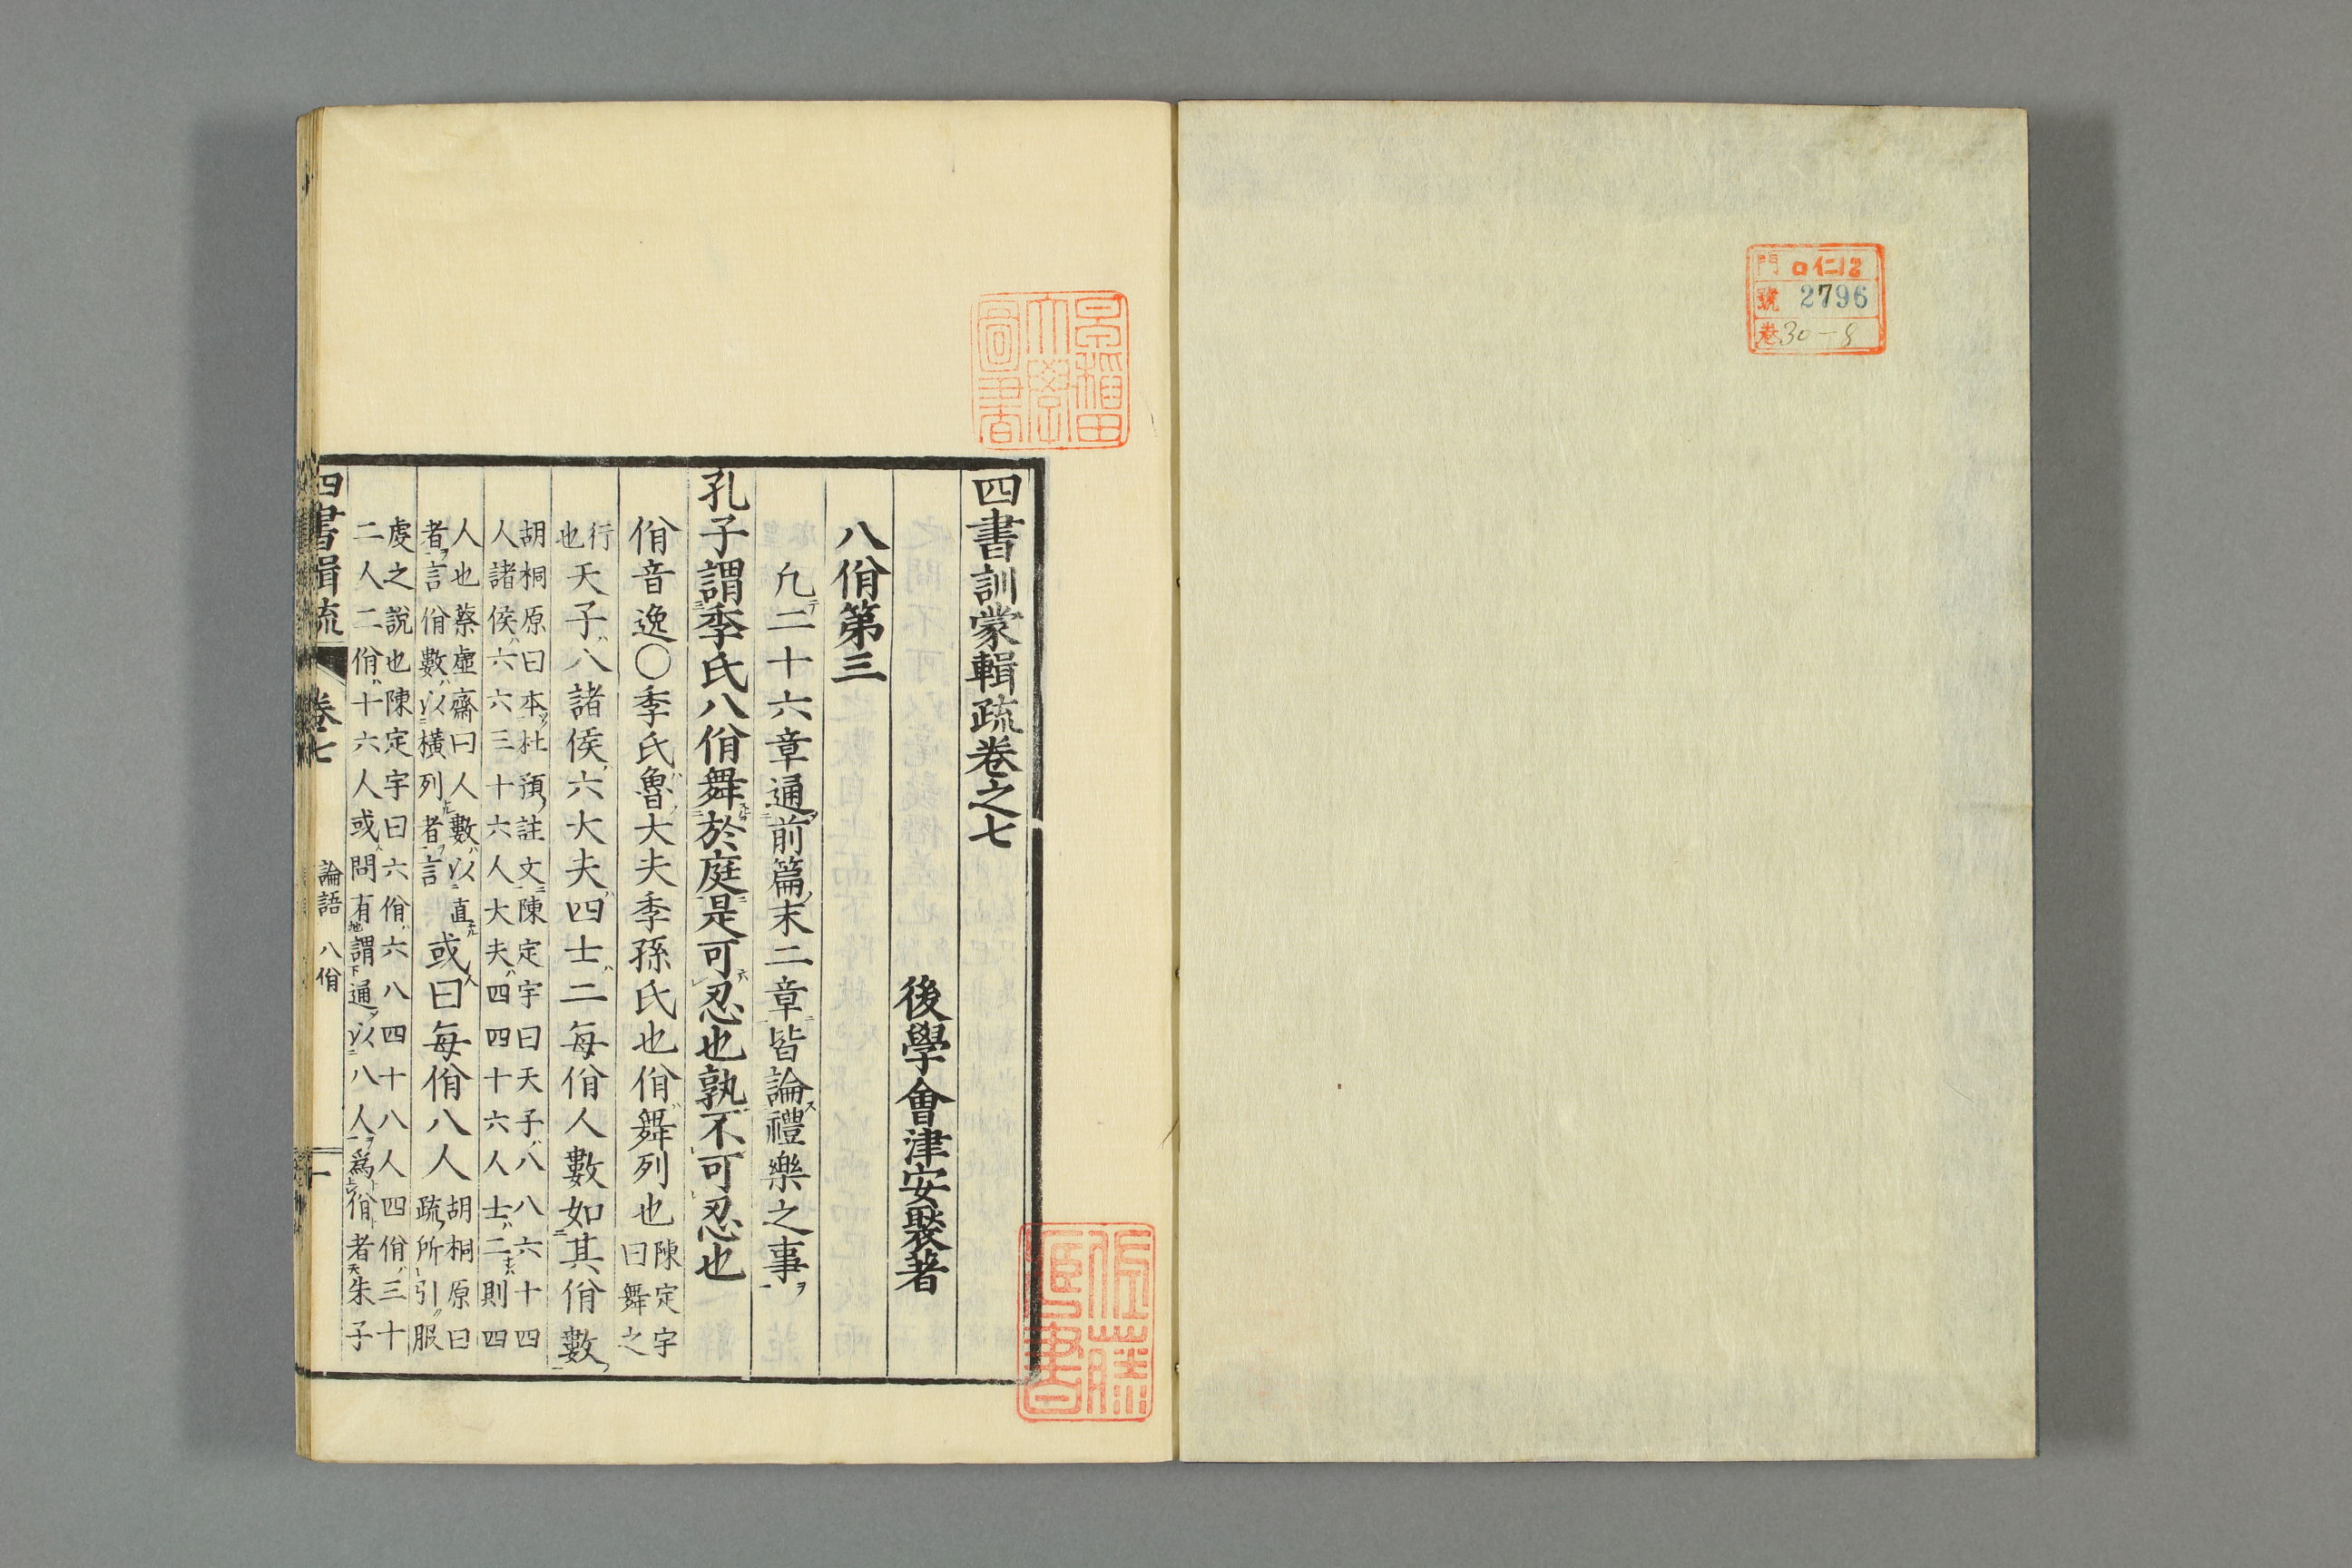 門 口仁12
號 2796
卷 30-8
早稲田大學圖書
四書訓蒙輯疏卷之七
後學會津安褧著
八佾第三
凡二十六章通前篇末二章皆論禮樂之事
孔子謂季氏八佾舞於庭是可忍也孰不可忍也
佾音逸〇季氏魯大夫季孫氏也佾舞列也陳定宇曰舞之
行也天子八諸侯六大夫四士二每佾人數如其佾數
胡桐原曰本杜預註文陳定宇曰天子八八六十四
人諸侯六六三十六人大夫四四十六人士二則四
人也蔡虛齋曰人數以直
者言佾數以橫列者言
或曰每佾八人
胡桐原曰
疏所引服
虔之說也陳定宇曰六佾六八四十八人四佾三十
二人二佾十六人或問有謂通以八人爲佾者朱子
四書輯疏 卷七 論語 八佾 一
佐藤